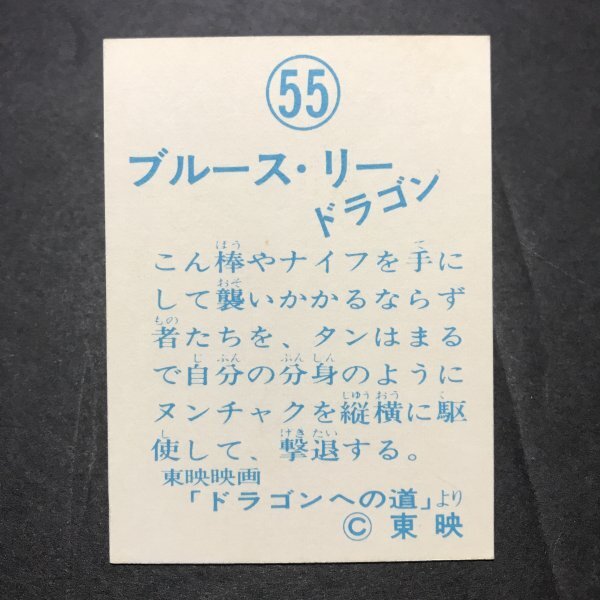 55
ブルース・リー
ドラゴン
こん棒やナイフを手に
して襲いかかるならず
者たちを、タンはまる
で自分の分身のように
ヌンチャクを縦横に駆
使して、撃退する。
東映映画
「ドラゴンへの道」より
©東映